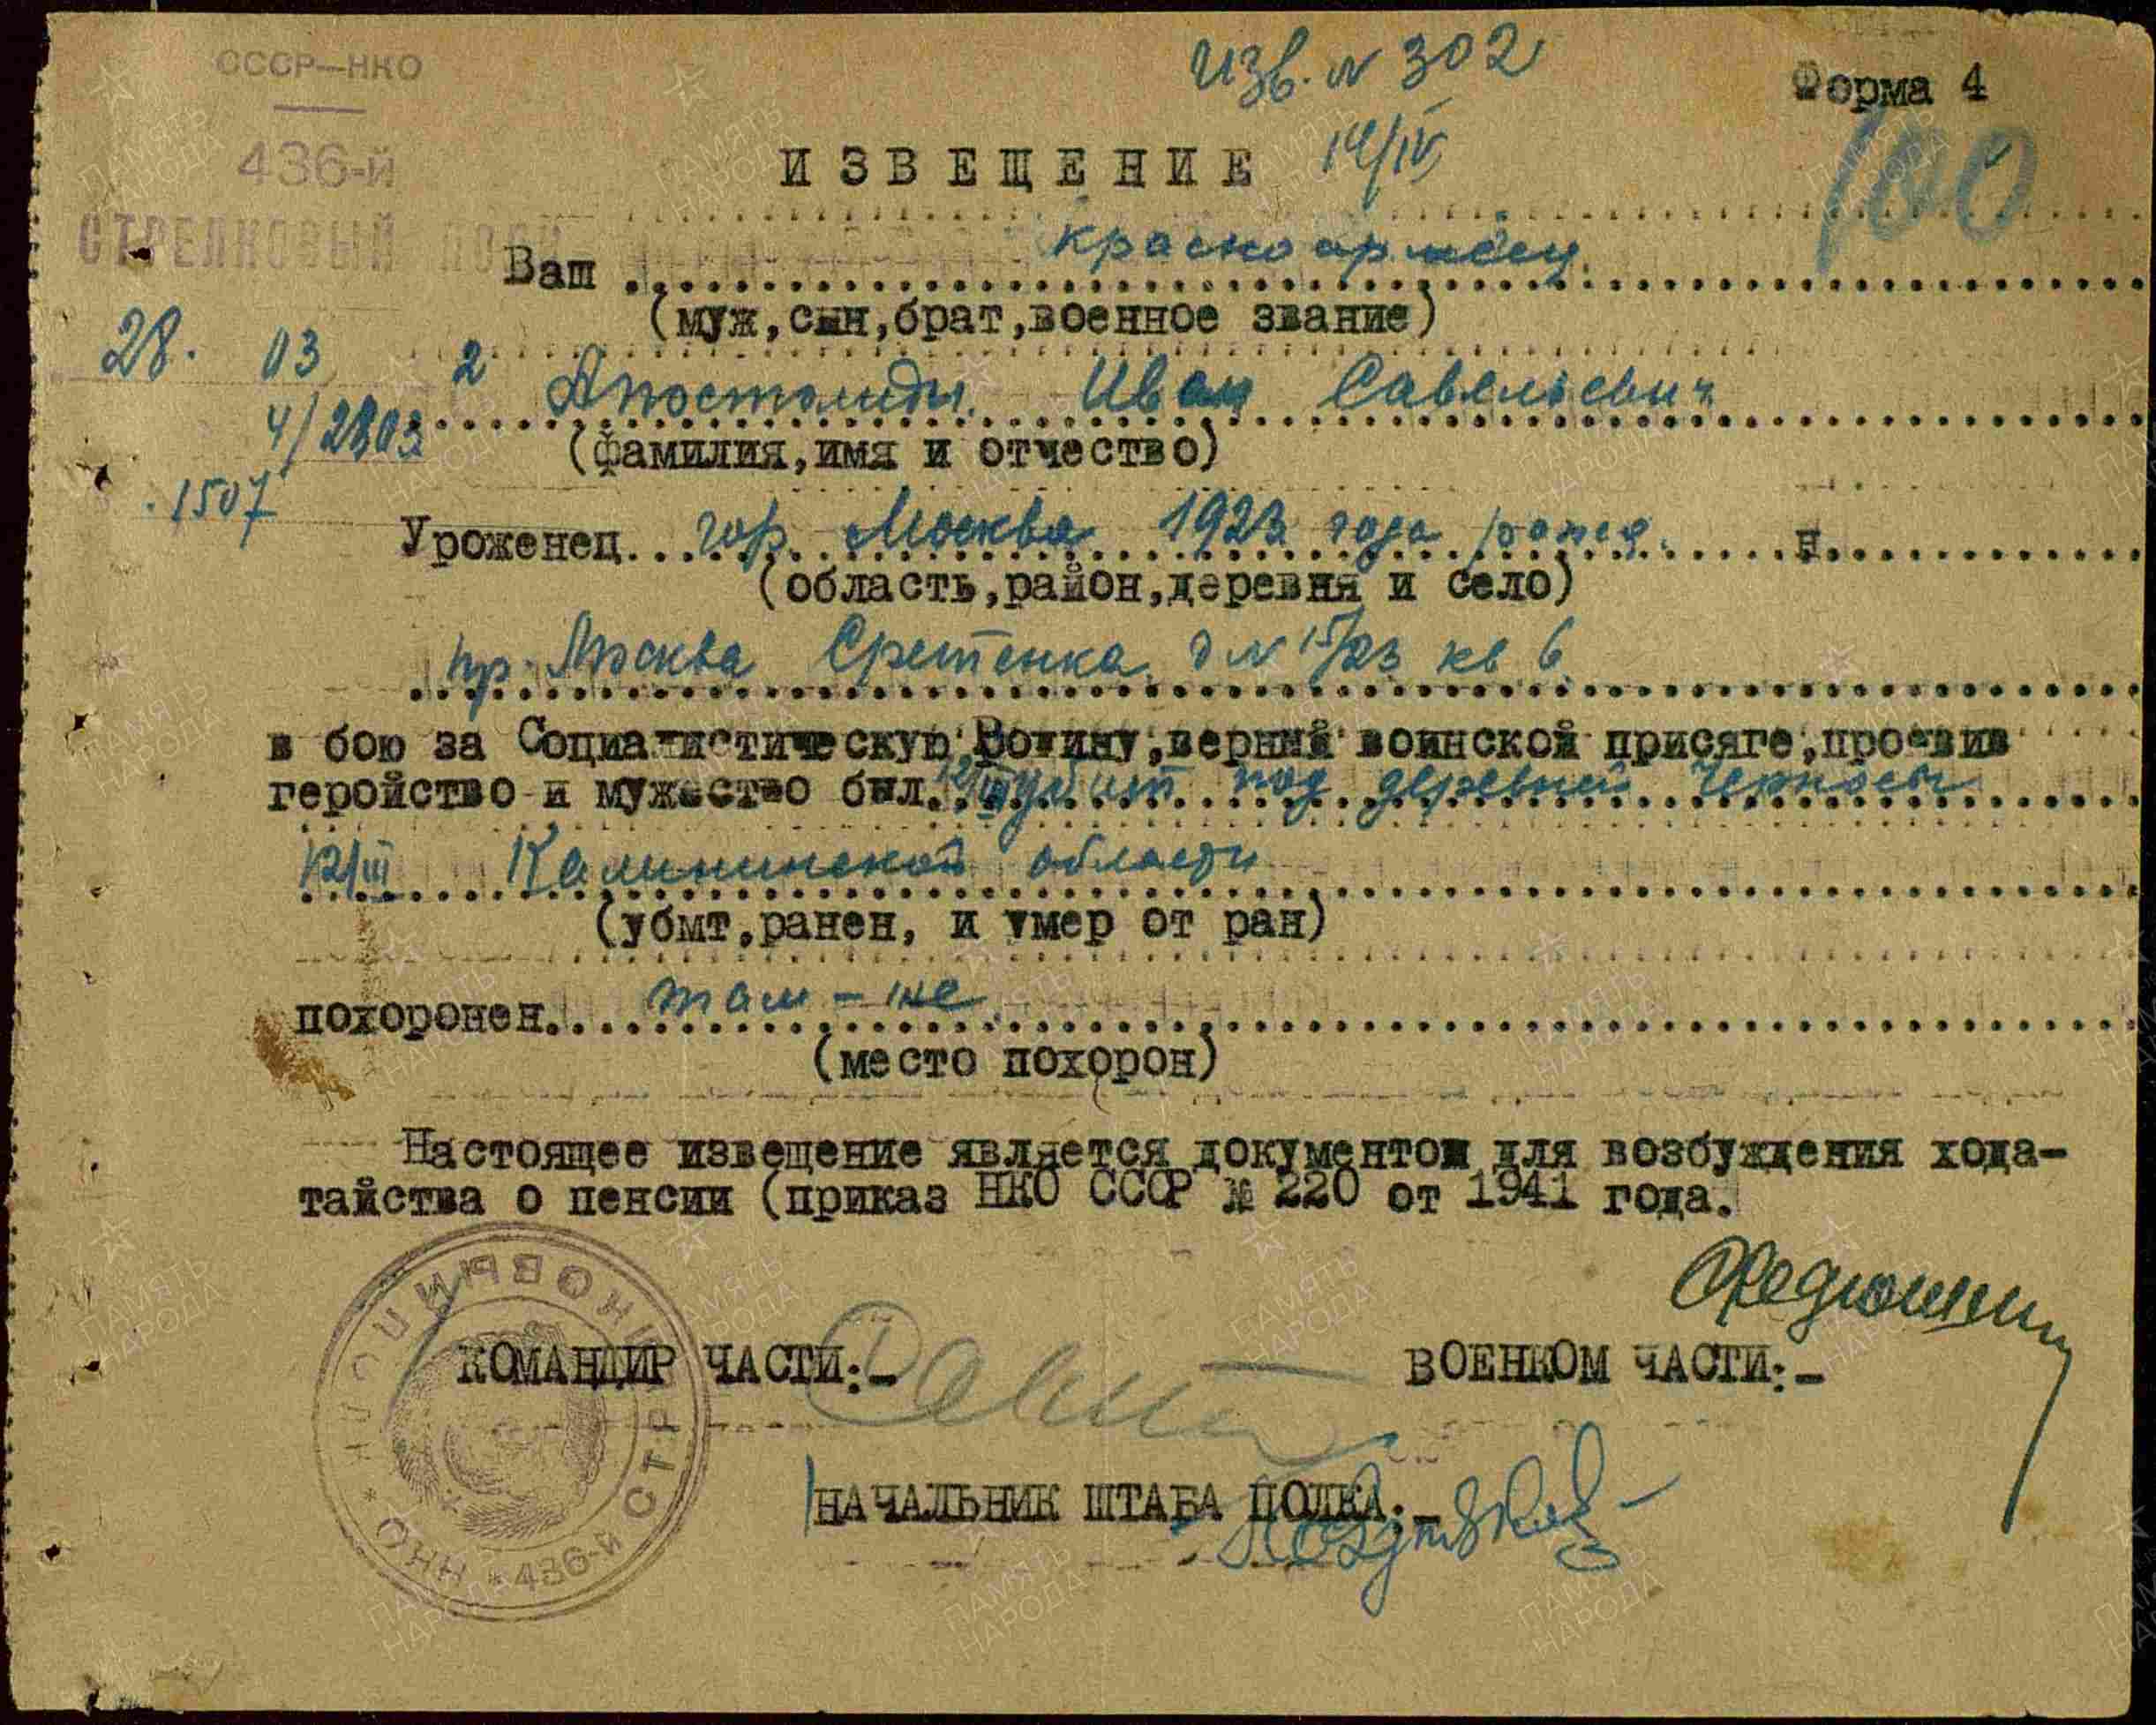 СССР—НКО
Изв. № 302
Форма 4
436-й
ИЗВЕЩЕНИЕ
14/IV
100
СТРЕЛКОВЫЙ ПОЛК
Ваш красноармеец
(муж,сын,брат,военное звание)
28. 03 2
Апостолиди Иван Савельевич
4/2803
(фамилия,имя и отчество)
1507
Уроженец гор. Москва 1923 года н.
(область,район,деревня и село)
пр. Москва Сретенка д № 15/23 кв 6
в бою за Социалистическую Родину,верный воинской присяге,проявив
геройство и мужество был 12/III убит под деревней
12/III Калининской области
(убмт,ранен, и умер от ран)
похоронен там-же
(место похорон)
Настоящее извещение является документом для возбуждения хода-
тайства о пенсии (приказ НКО СССР № 220 от 1941 года.
КОМАНДИР ЧАСТИ:-
ВОЕНКОМ ЧАСТИ:-
НАЧАЛЬНИК ШТАБА ПОЛКА:-
НКО * 436-й СТРЕЛКОВЫЙ ПОЛК *
ПАМЯТЬ НАРОДА